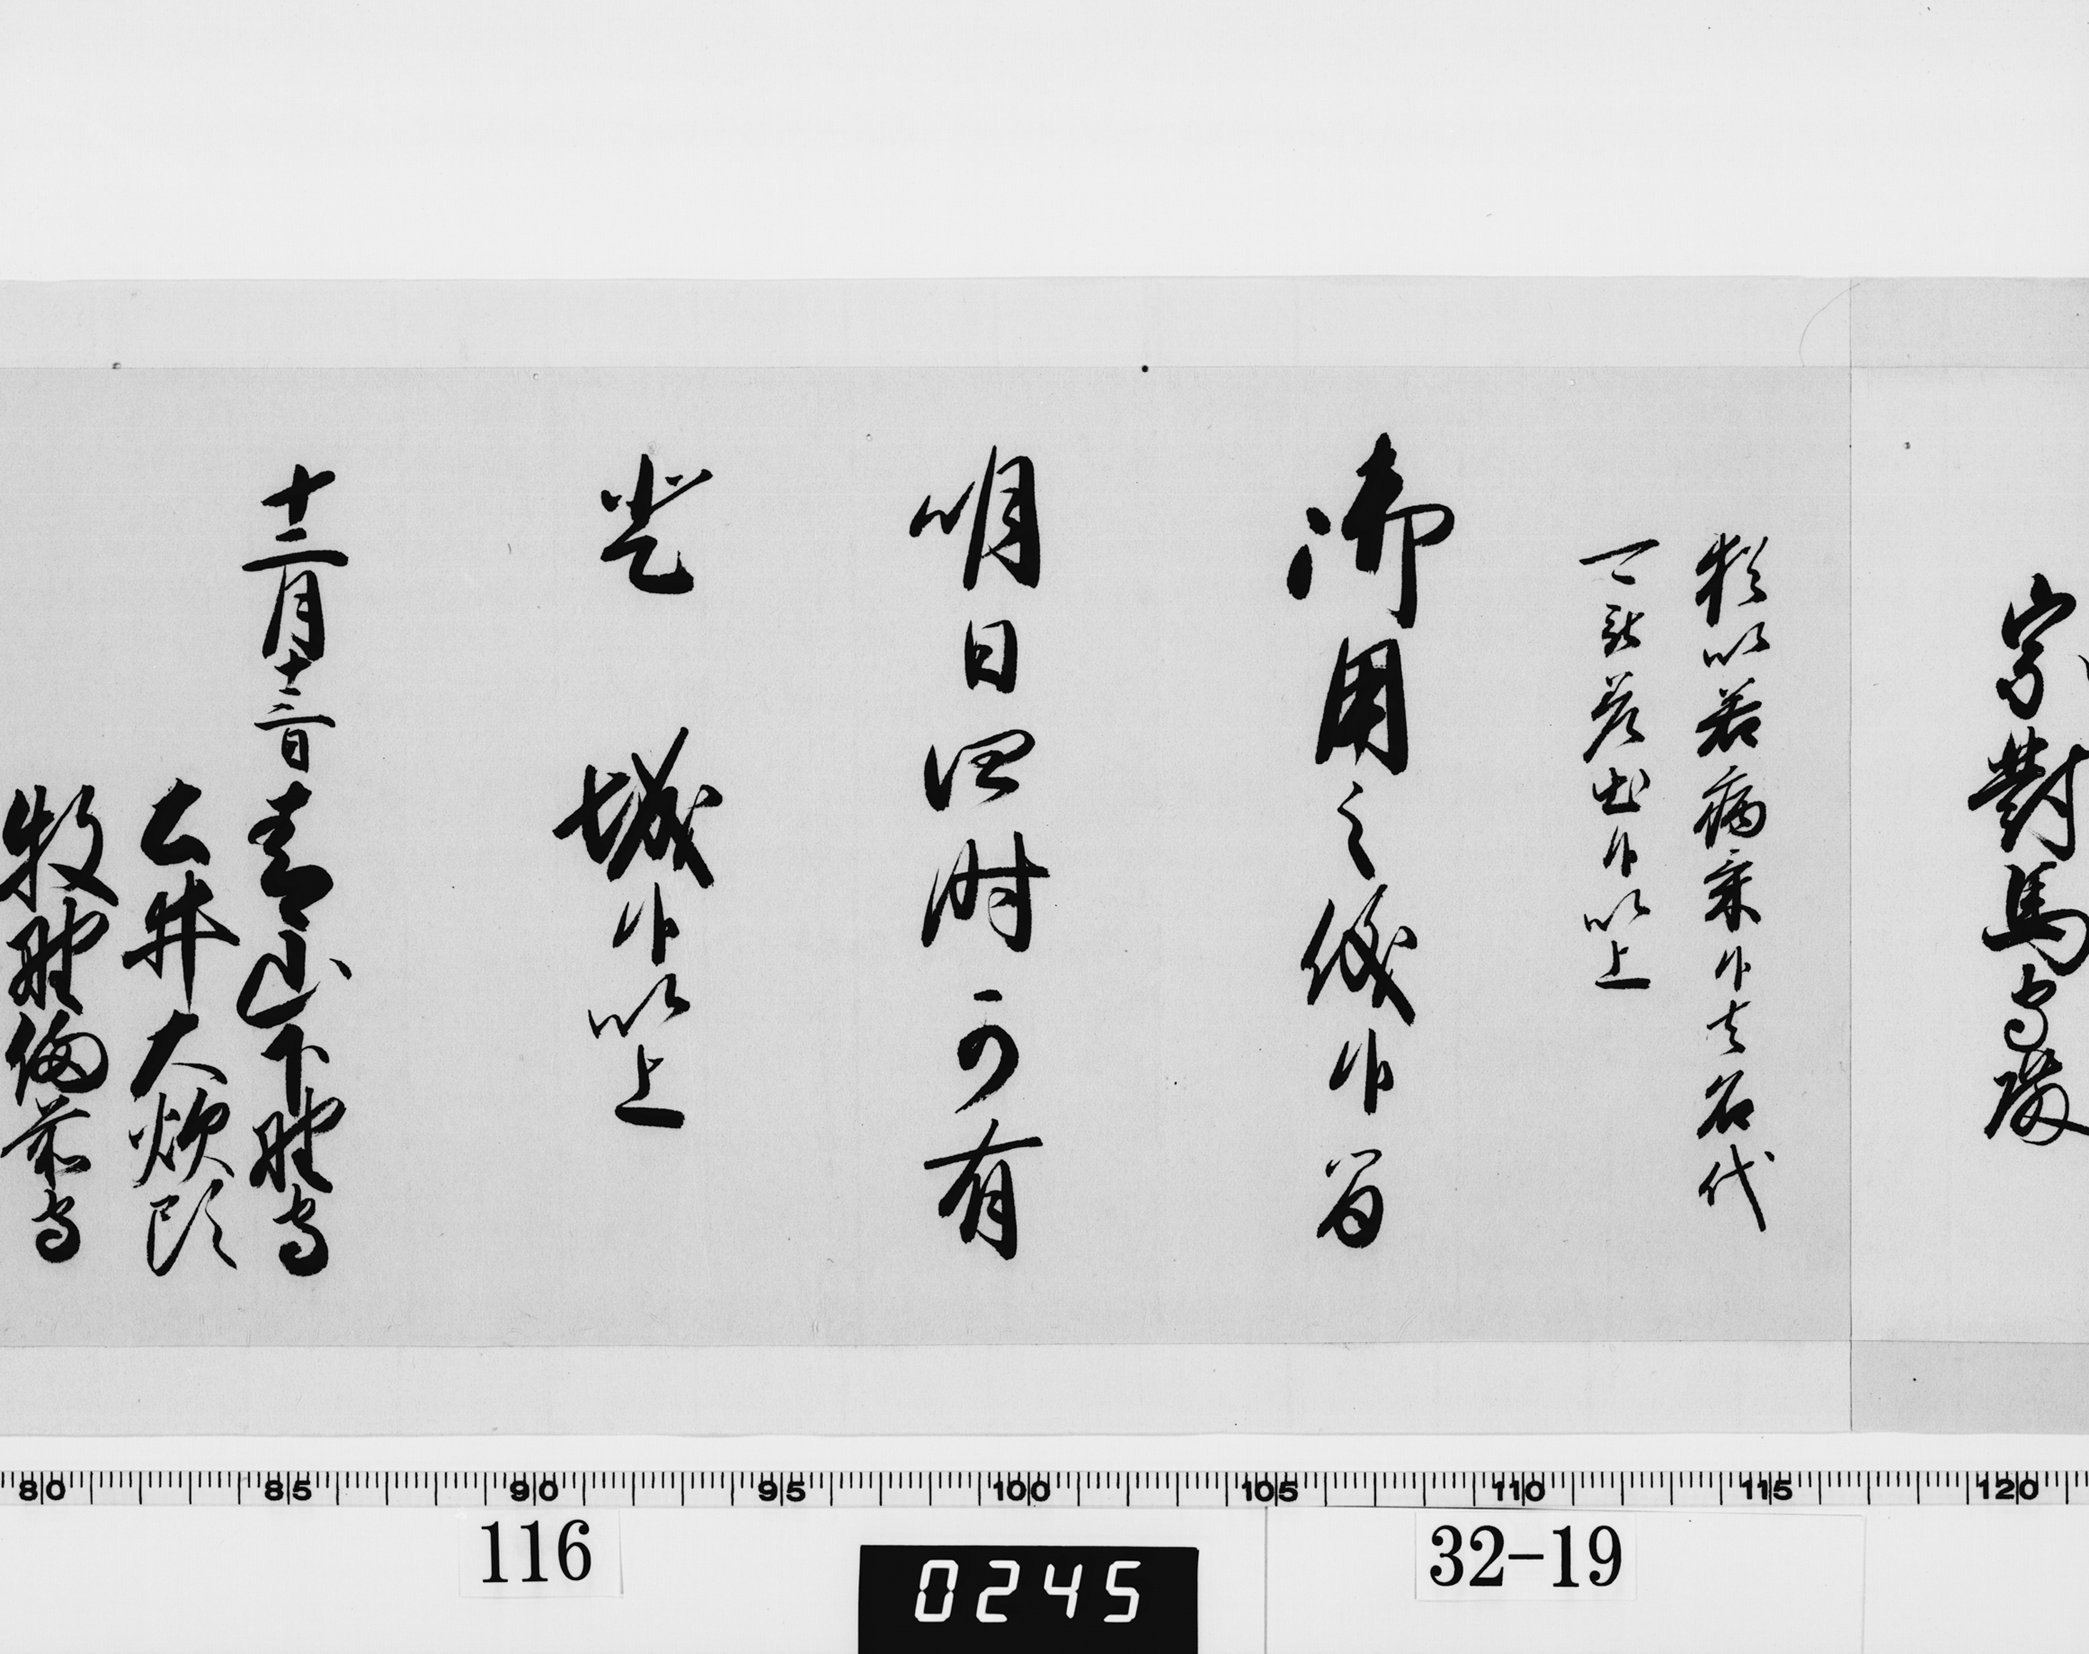 宗對馬守殿
猶以若病氣候者名代
可被差出候以上
御用之儀候間
明日四時可有
登 城候以上
十二月十三日 青山下野守
土井大炊頭
牧野備前守
80 85 90 95 100 105 110 115 120
116
0245
32-19